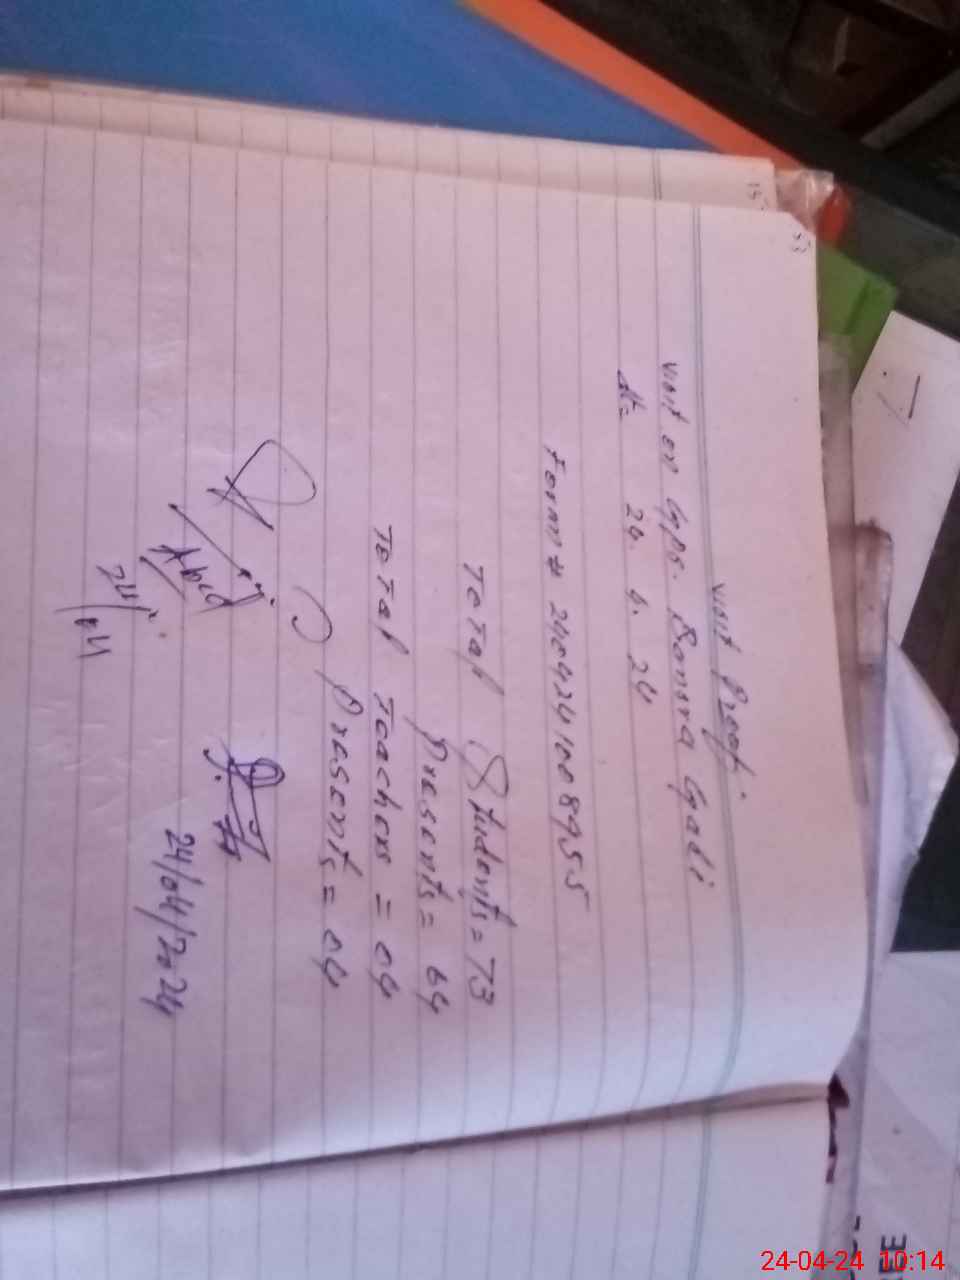 53
visit Proof.
visit on Gps. Bansra Gadi
dt= 24. 4. 24
Form # 2404241008955
Total Students = 73
Presents = 64
Total Teachers = 04
Presents = 04
24/04/2024
EE
24-04-24 10:14